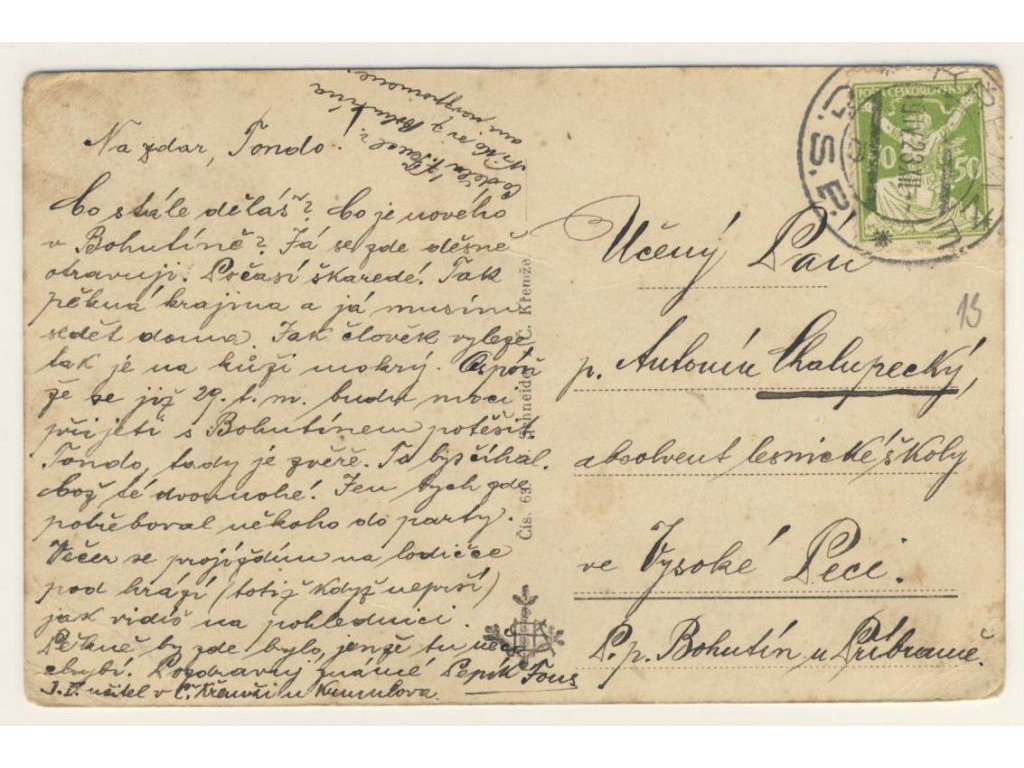 Na zdar, Tondo!
Co stále děláš? Co je nového
v Bohutíně? Já se zde děsně
otravuji. Počasí škaredé. Tak
pěkná krajina a já musím
sedět doma. Jak člověk vyleze
tak je na kůži mokrý.
že se již 29. t. m. budu moci
přijetí s Bohutínem potěšit
Tondo, tady je zvěře. To bys číhal.
té dvounohé! Jen bych zde
potřeboval někoho do party.
Večer se projíždím na lodičce
pod hrází (totiž když neprší)
jak vidíš na pohlednici.
Pěkně by zde bylo, jenže tu
chybí. Pozdravuj známé Pepík Fous
J. F. učitel v Č. Křemži u Krumlova.
Čís. 63 Schneider, Č. Křemže
POŠTA ČESKOSLOVENSKÁ
50
Č.S.P.
Učený Pan
13
p. Antonín Chalupecký,
absolvent lesnické školy
ve Vysoké Peci.
P. p. Bohutín u Příbramě.